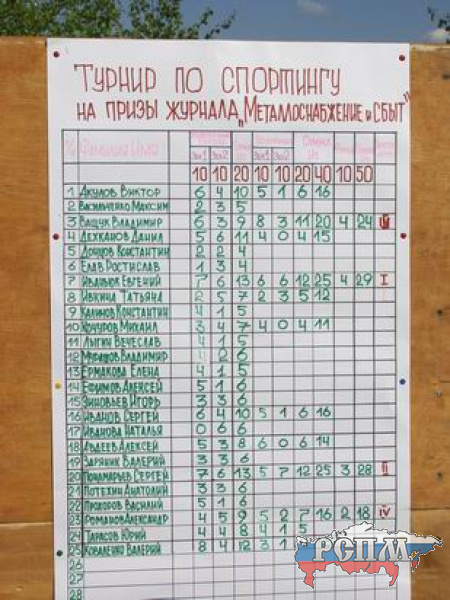 Турнир по спортингу
на призы журнала „Металлоснабжение и Сбыт"
№ Фамилия Имя
Зал1 Зал2
10 10 20 10 10 20 40 10 50
1 Акулов Виктор 6 4 10 5 1 6 16
2 Васильченко Максим 2 3 5
3 Ващук Владимир 6 3 9 8 3 11 20 4 24 III
4 Дехканов Данил 5 6 11 4 0 4 15
5 Донцов Константин 2 2 4
6 Елав Ростислав 1 3 4
7 Иванюк Евгений 7 6 13 6 6 12 25 4 29 I
8 Ивкина Татьяна 2 5 7 2 3 5 12
9 Калинов Константин 4 1 5
10 Кочуров Михаил 3 4 7 4 0 4 11
11 Лыгин Вечеслав 4 1 5
12 Владимир 2 6
13 Ермакова Елена 4 1 5
14 Ефимов Алексей 5 1 6
15 Зиновьев Игорь 3 3 6
16 Иванов Сергей 6 4 10 5 1 6 16
17 Иванова Наталья 0 6 6
18 Авдеев Алексей 5 3 8 6 0 6 14
19 Заряник Валерий 3 3 6
20 Пономарьев Сергей 7 6 13 5 7 12 25 3 28 II
21 Потехин Анатолий 3 3 6
22 Прохоров Василий 5 1 6
23 Романов Александр 4 5 9 5 2 7 16 2 18 IV
24 Тарасов Юрий 4 4 8 4 1 5
25 Коваленко Валерий 8 4 12 3 1
26
27
28
РСПМ